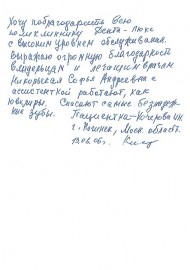 Хочу поблагодарить всю
поликлинику Дента-Люкс
с высоким уровнем обслуживания.
Выражаю огромную благодарность
владельцам и лечащим врачам
Никольская Софья Андреевна с
ассистенткой работают, как
ювелиры. Спасают самые безнадеж-
ные зубы.
Пациентка-Кочерова
г. Химки, Моск. область.